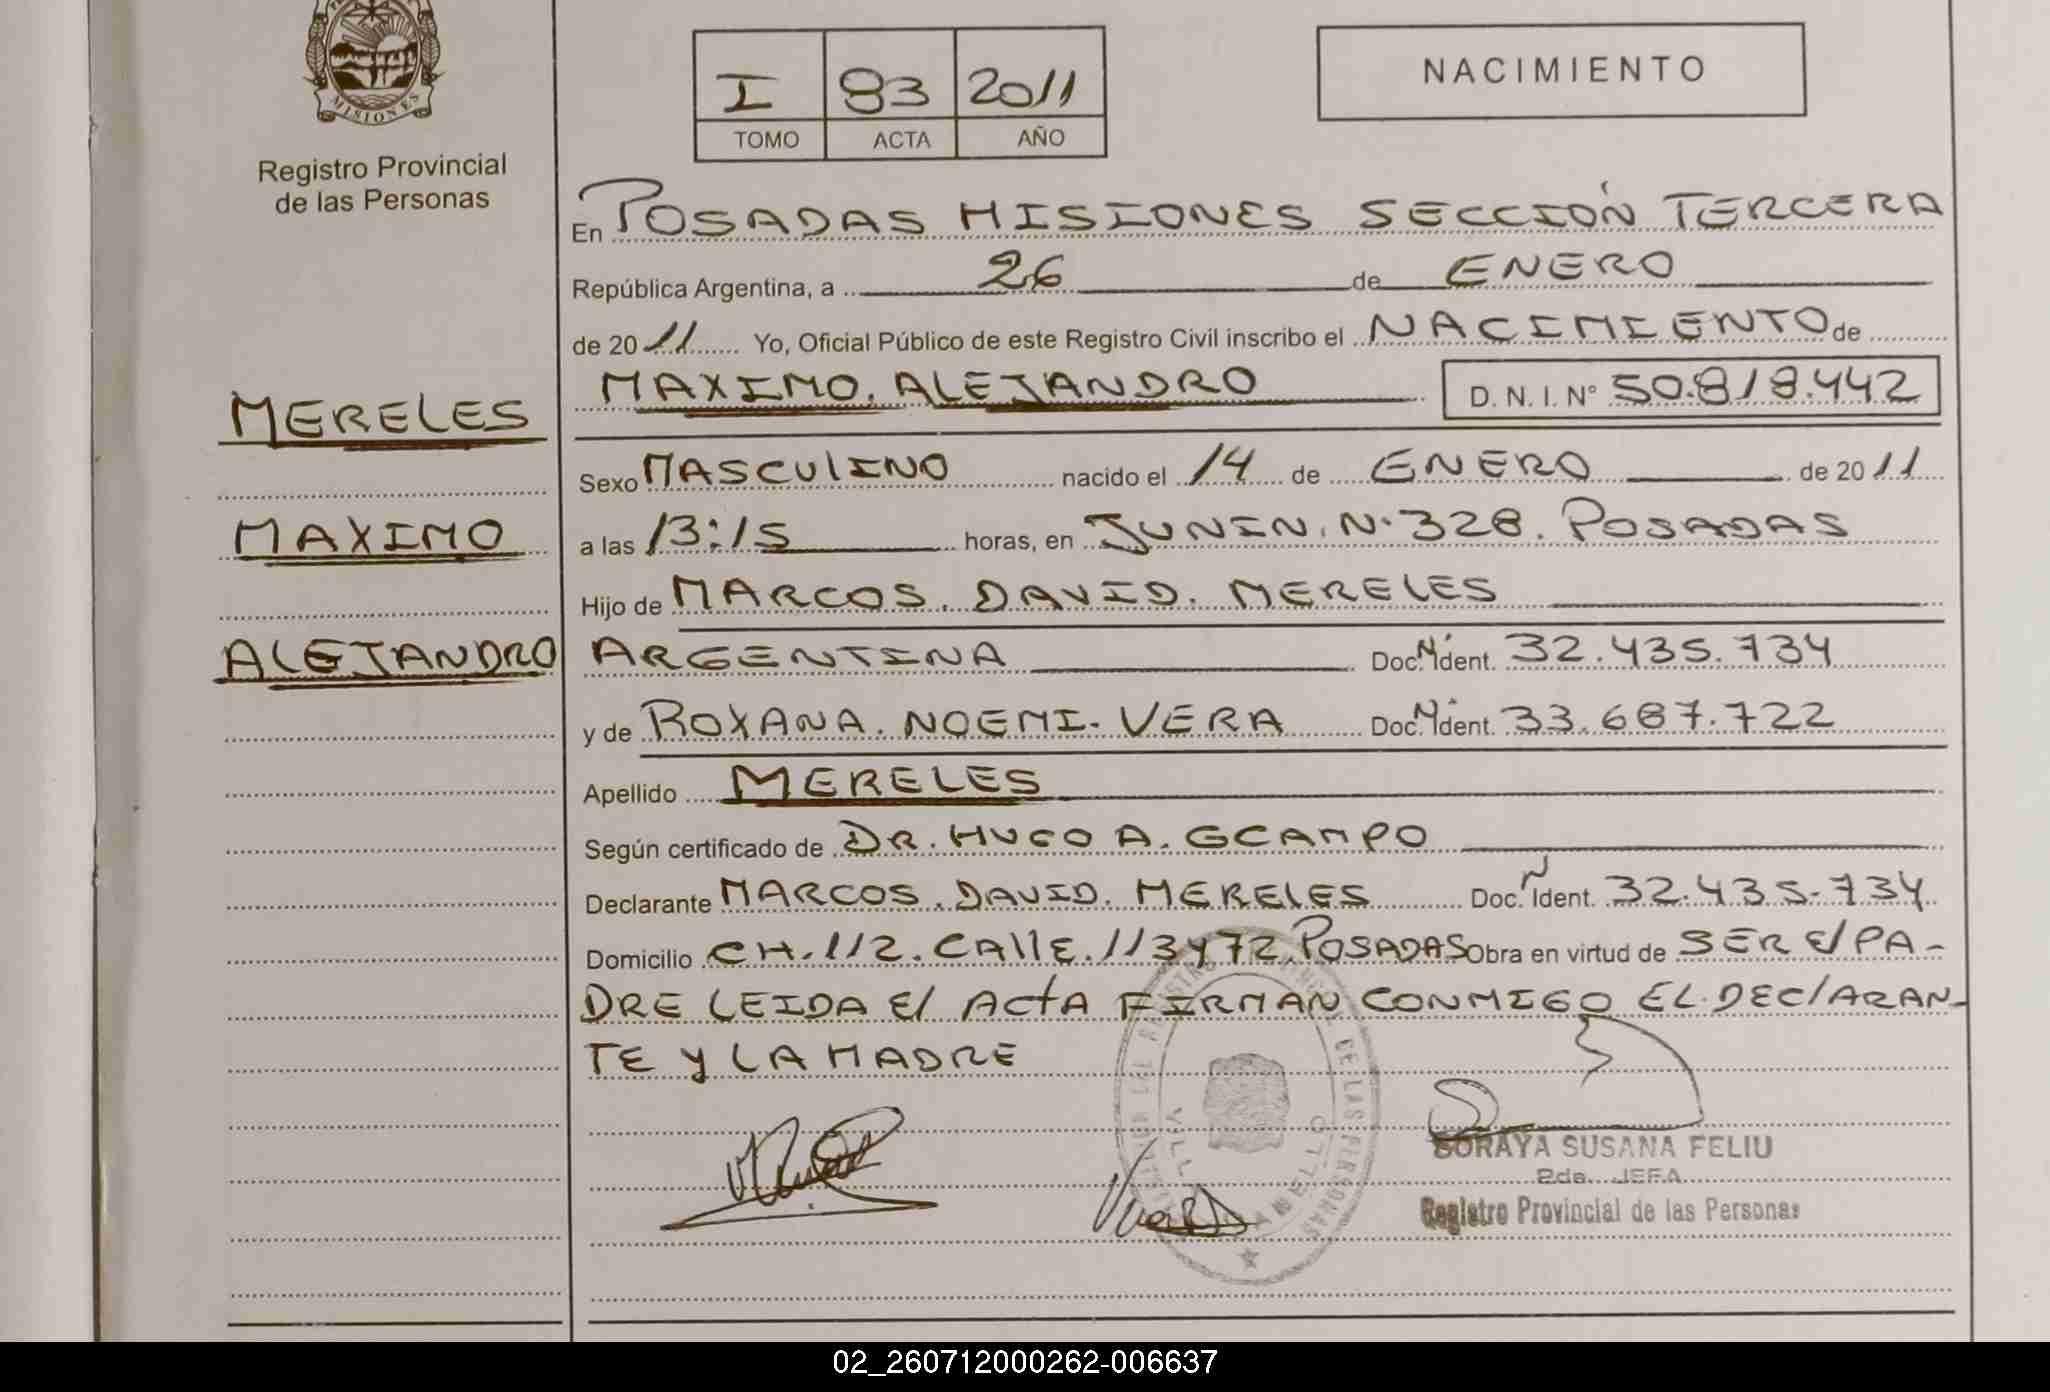 MISIONES
Registro Provincial
de las Personas
I 93 2011
TOMO ACTA AÑO
NACIMIENTO
En POSADAS MISIONES SECCIÓN TERCERA
República Argentina, a 26 de ENERO
de 2011 Yo, Oficial Público de este Registro Civil inscribo el NACIMIENTO de
MAXIMO. ALEJANDRO D. N. I. N° 50.818.442
MERELES
MAXIMO
ALEJANDRO
Sexo MASCULINO nacido el 14 de ENERO de 2011
a las 13:15 horas, en JUNIN. N° 328. POSADAS
Hijo de MARCOS. DAVID. MERELES
ARGENTINA Doc. N° Ident. 32.435.734
y de ROXANA. NOEMI. VERA Doc. N° Ident. 33.687.722
Apellido MERELES
Según certificado de DR. HUGO A. OCAMPO
Declarante MARCOS. DAVID. MERELES Doc. N Ident. 32.435.734
Domicilio CH. 112. CAllE. 113 Y 72. POSADAS Obra en virtud de SER El PA-
DRE LEIDA El ActA FIRMAN CONMIGO EL DEClARAN-
TE Y LA MADRE
SORAYA SUSANA FELIU
2da. JEFA
Registro Provincial de las Personas
02_260712000262-006637